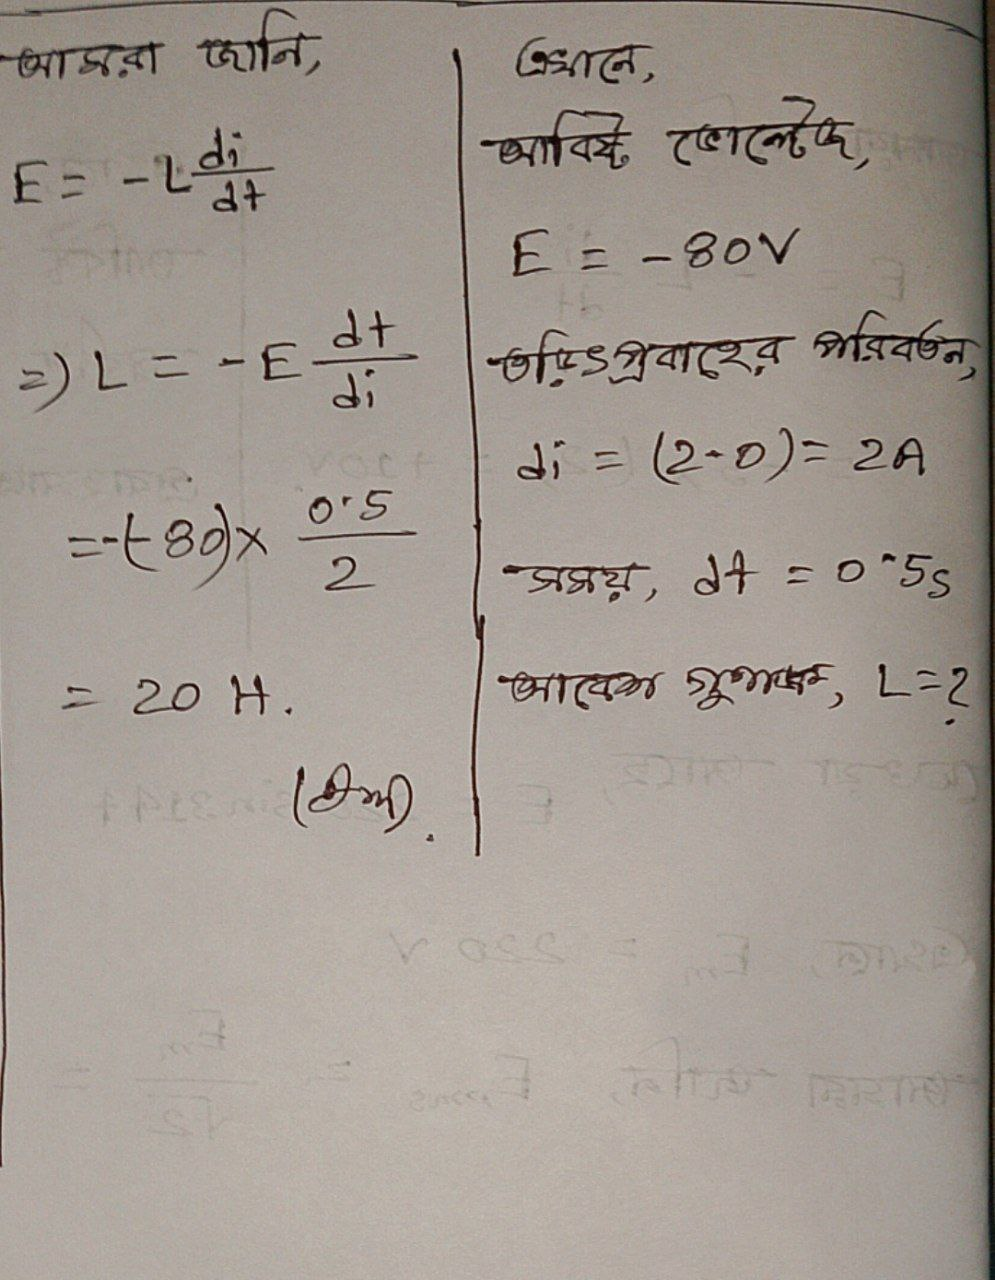 আমরা জানি,
E = -L di/dt
=) L = -E dt/di
= -(-80) × 0.5/2
= 20 H.
(Ans).
এখানে,
আবিষ্ট ভোল্টেজ,
E = -80V
তড়িৎপ্রবাহের পরিবর্তন,
di = (2-0) = 2A
সময়, dt = 0.5s
আবেশ গুণাঙ্ক, L=?